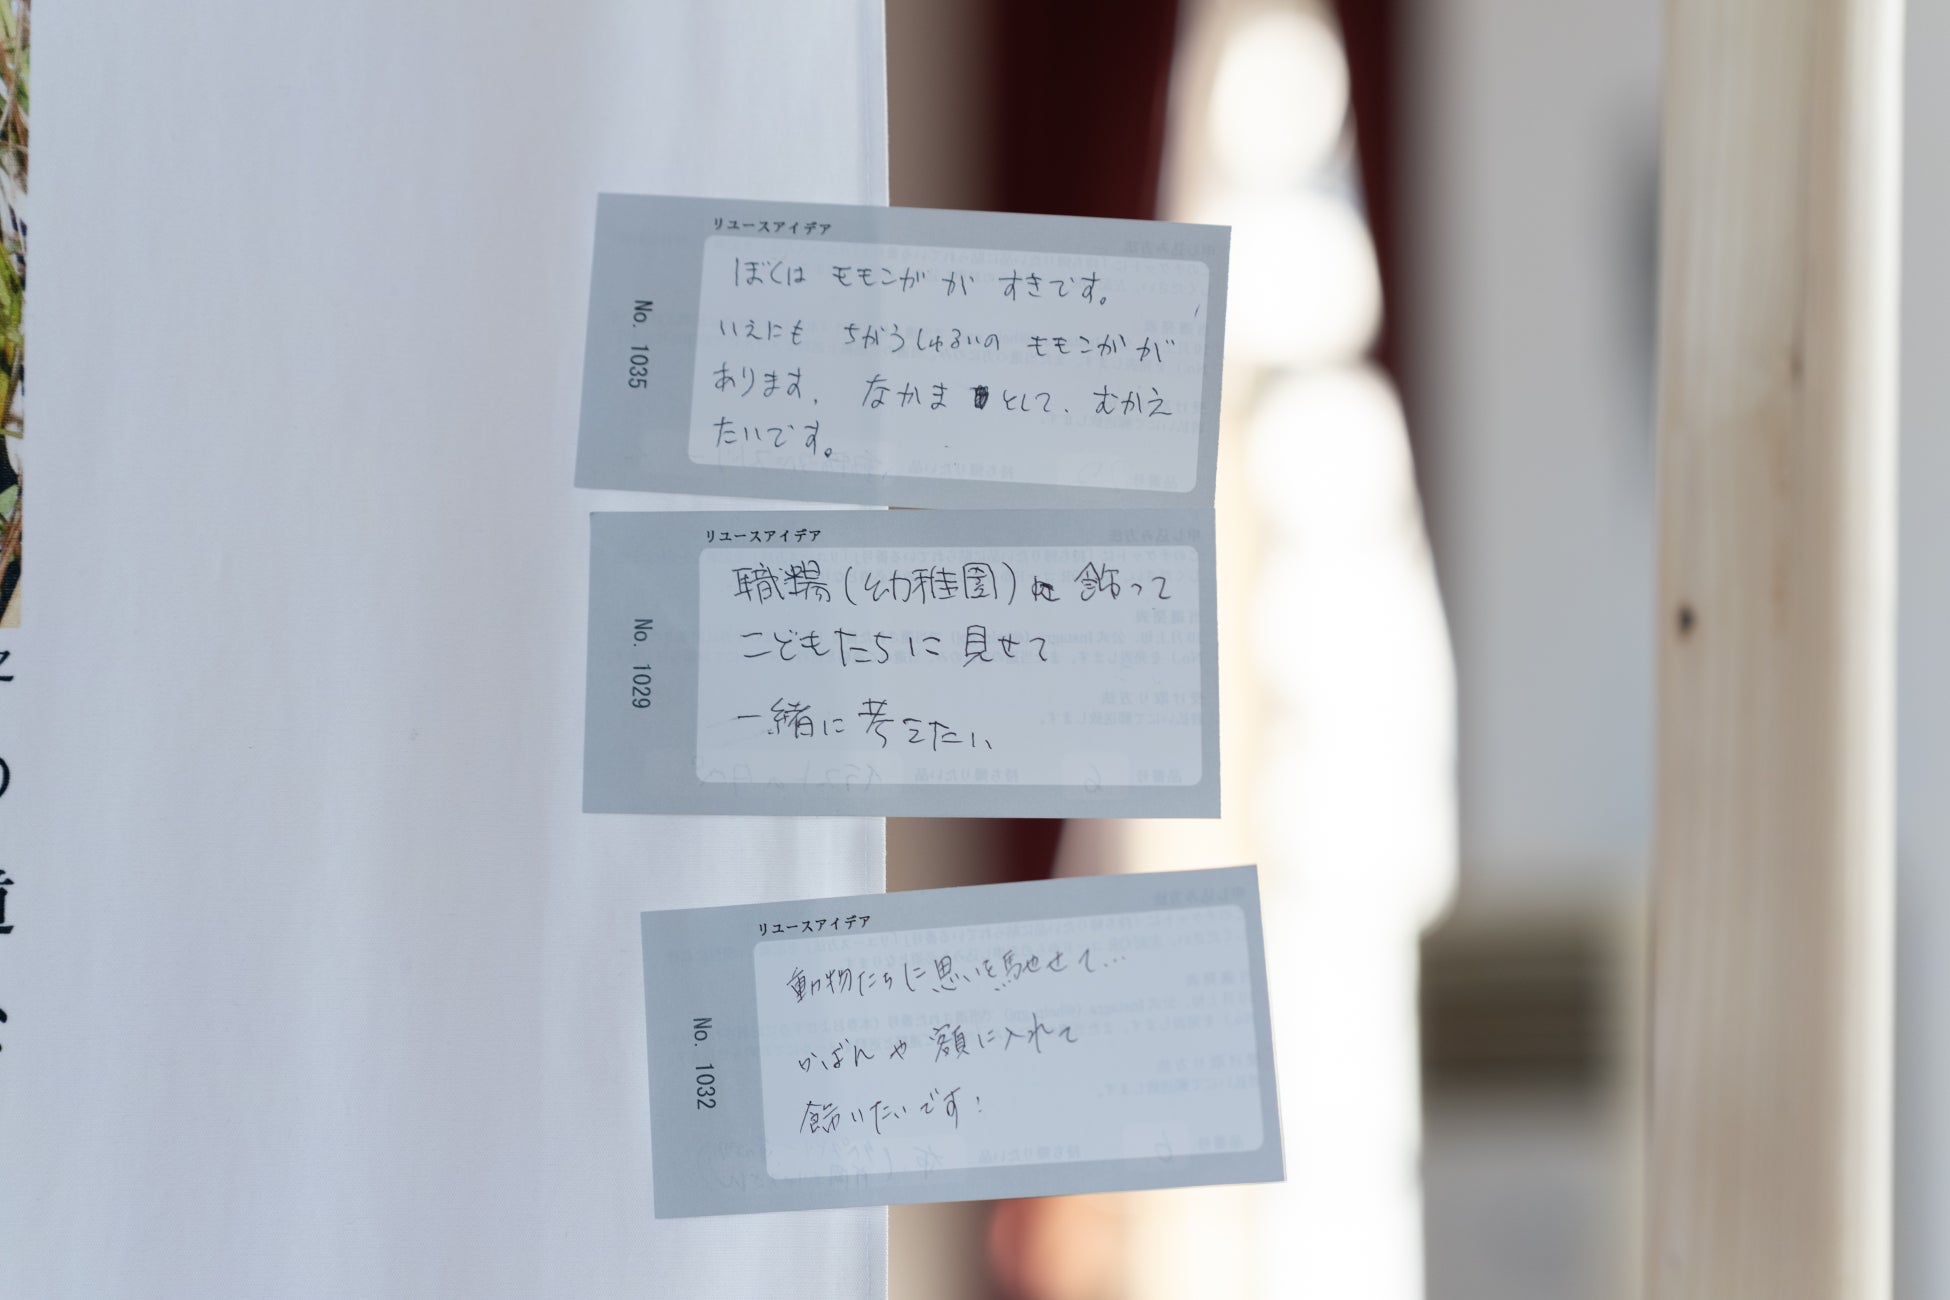 リユースアイデア
No. 1035
ぼくは モモンガ が すきです。
いえにも ちがうしゅるいの モモンガ が
あります。 なかま として、 むかえ
たいです。
リユースアイデア
No. 1029
職場(幼稚園)に 飾って
こどもたちに 見せて
一緒に 考えたい
リユースアイデア
No. 1032
動物たちに思いを馳せて...
かばんや 額に入れて
飾りたいです!